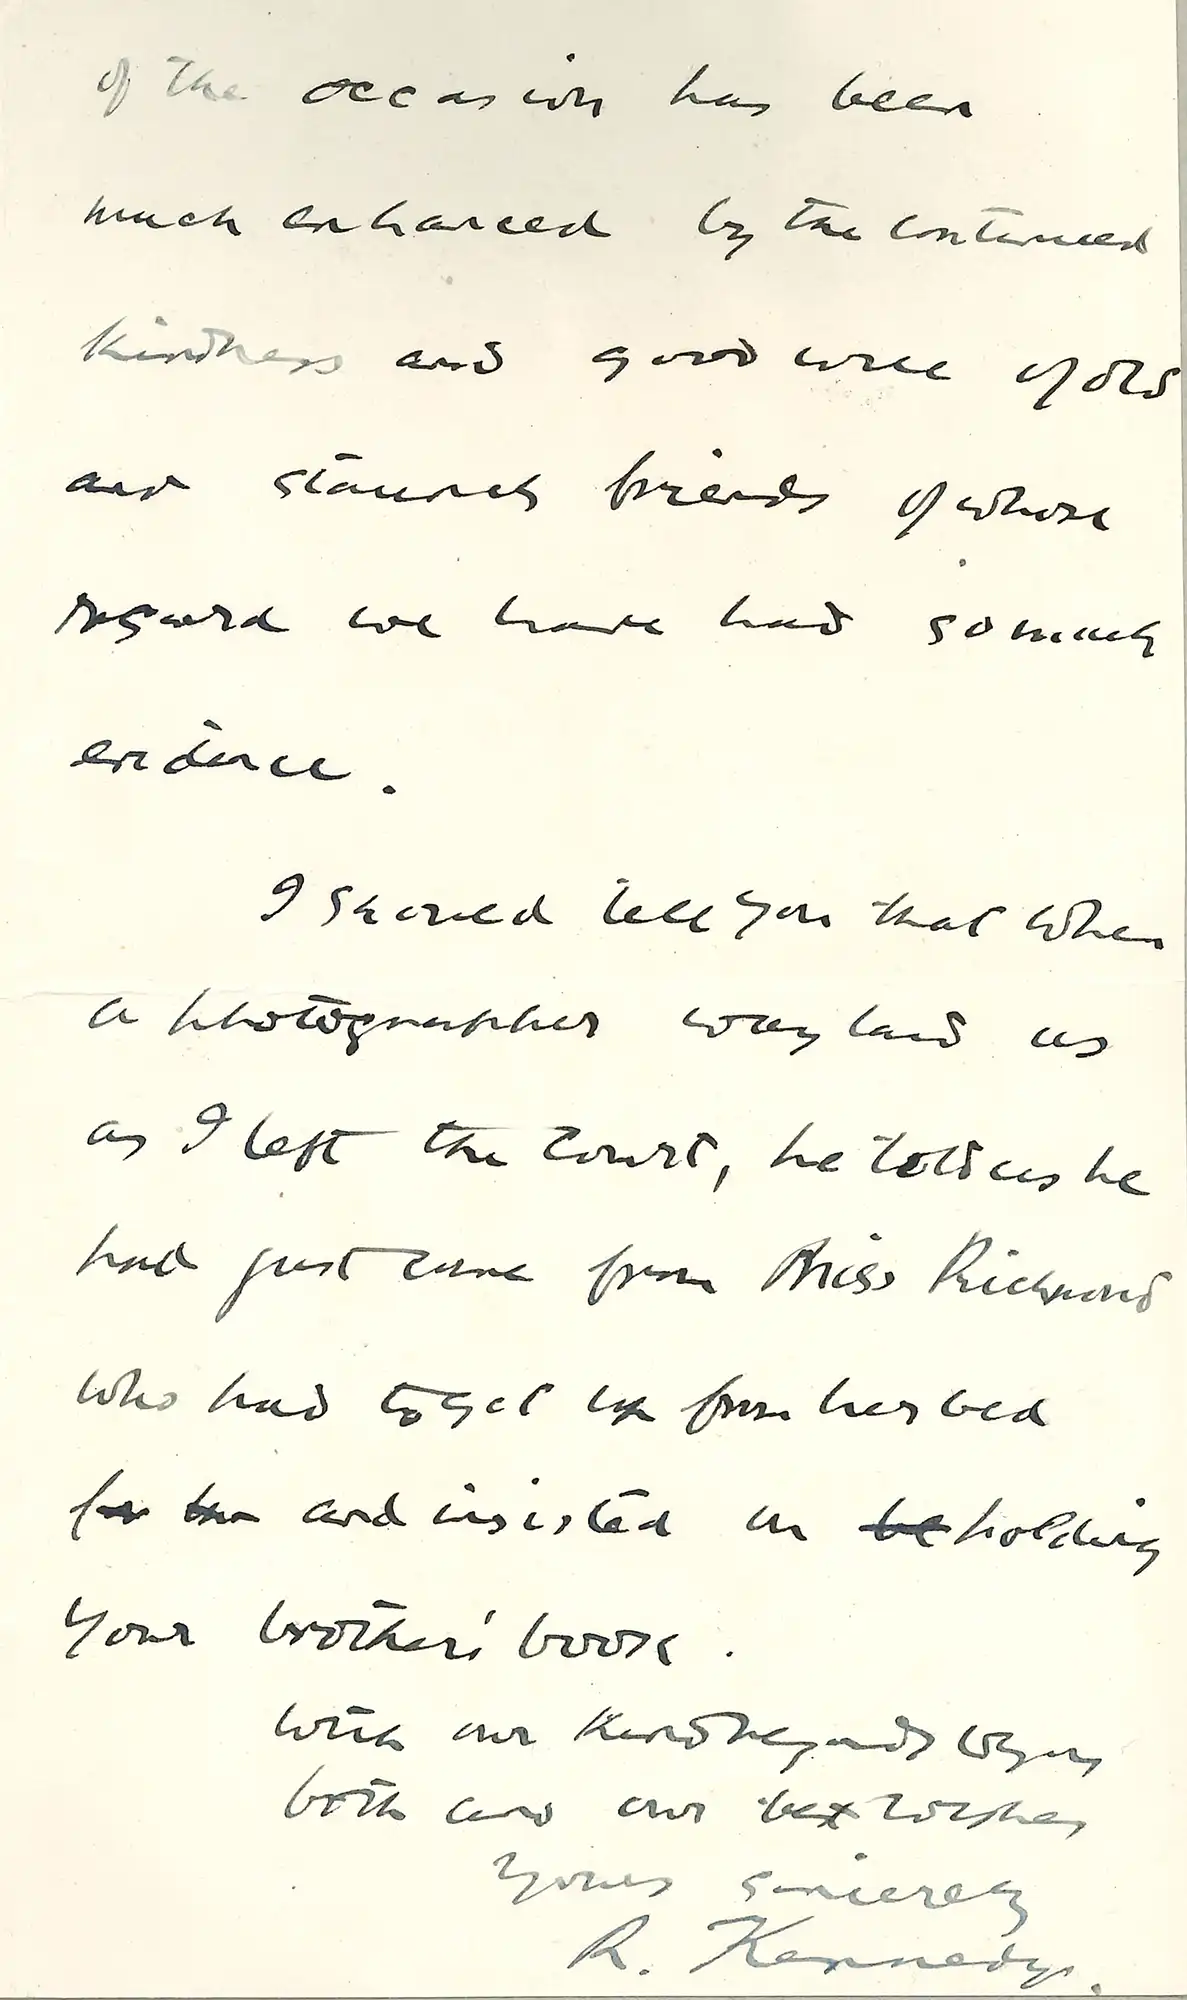 of the occasion has been
much enhanced by the continued
kindness and good will of old
and staunch friends of whose
regard we have had so much
evidence.
I should tell you that when
a photographer waylaid us
as I left the Court, he told us he
had just come from Miss Richmond
who had to get up from her bed
and insisted on holding
your brother's book.
With our kind regards to you
both and our best wishes
Yours sincerely
R. Kennedy.